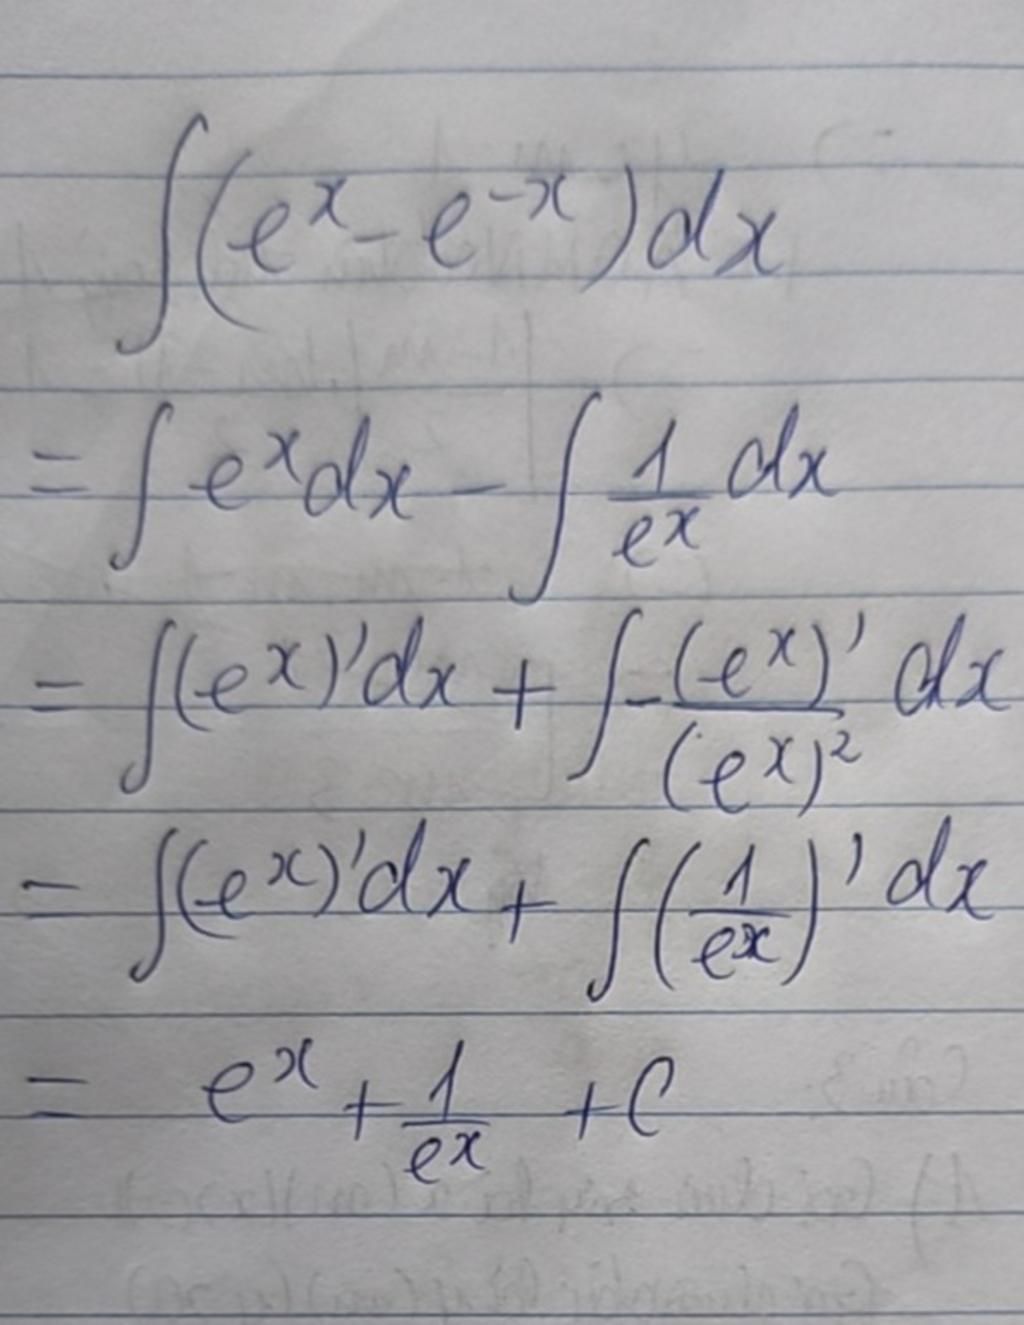 ∫(eˣ - e⁻ˣ)dx
= ∫ eˣdx - ∫ 1/eˣ dx
= ∫(eˣ)'dx + ∫ -(eˣ)'/(eˣ)² dx
= ∫(eˣ)'dx + ∫ (1/eˣ)' dx
= eˣ + 1/eˣ + C